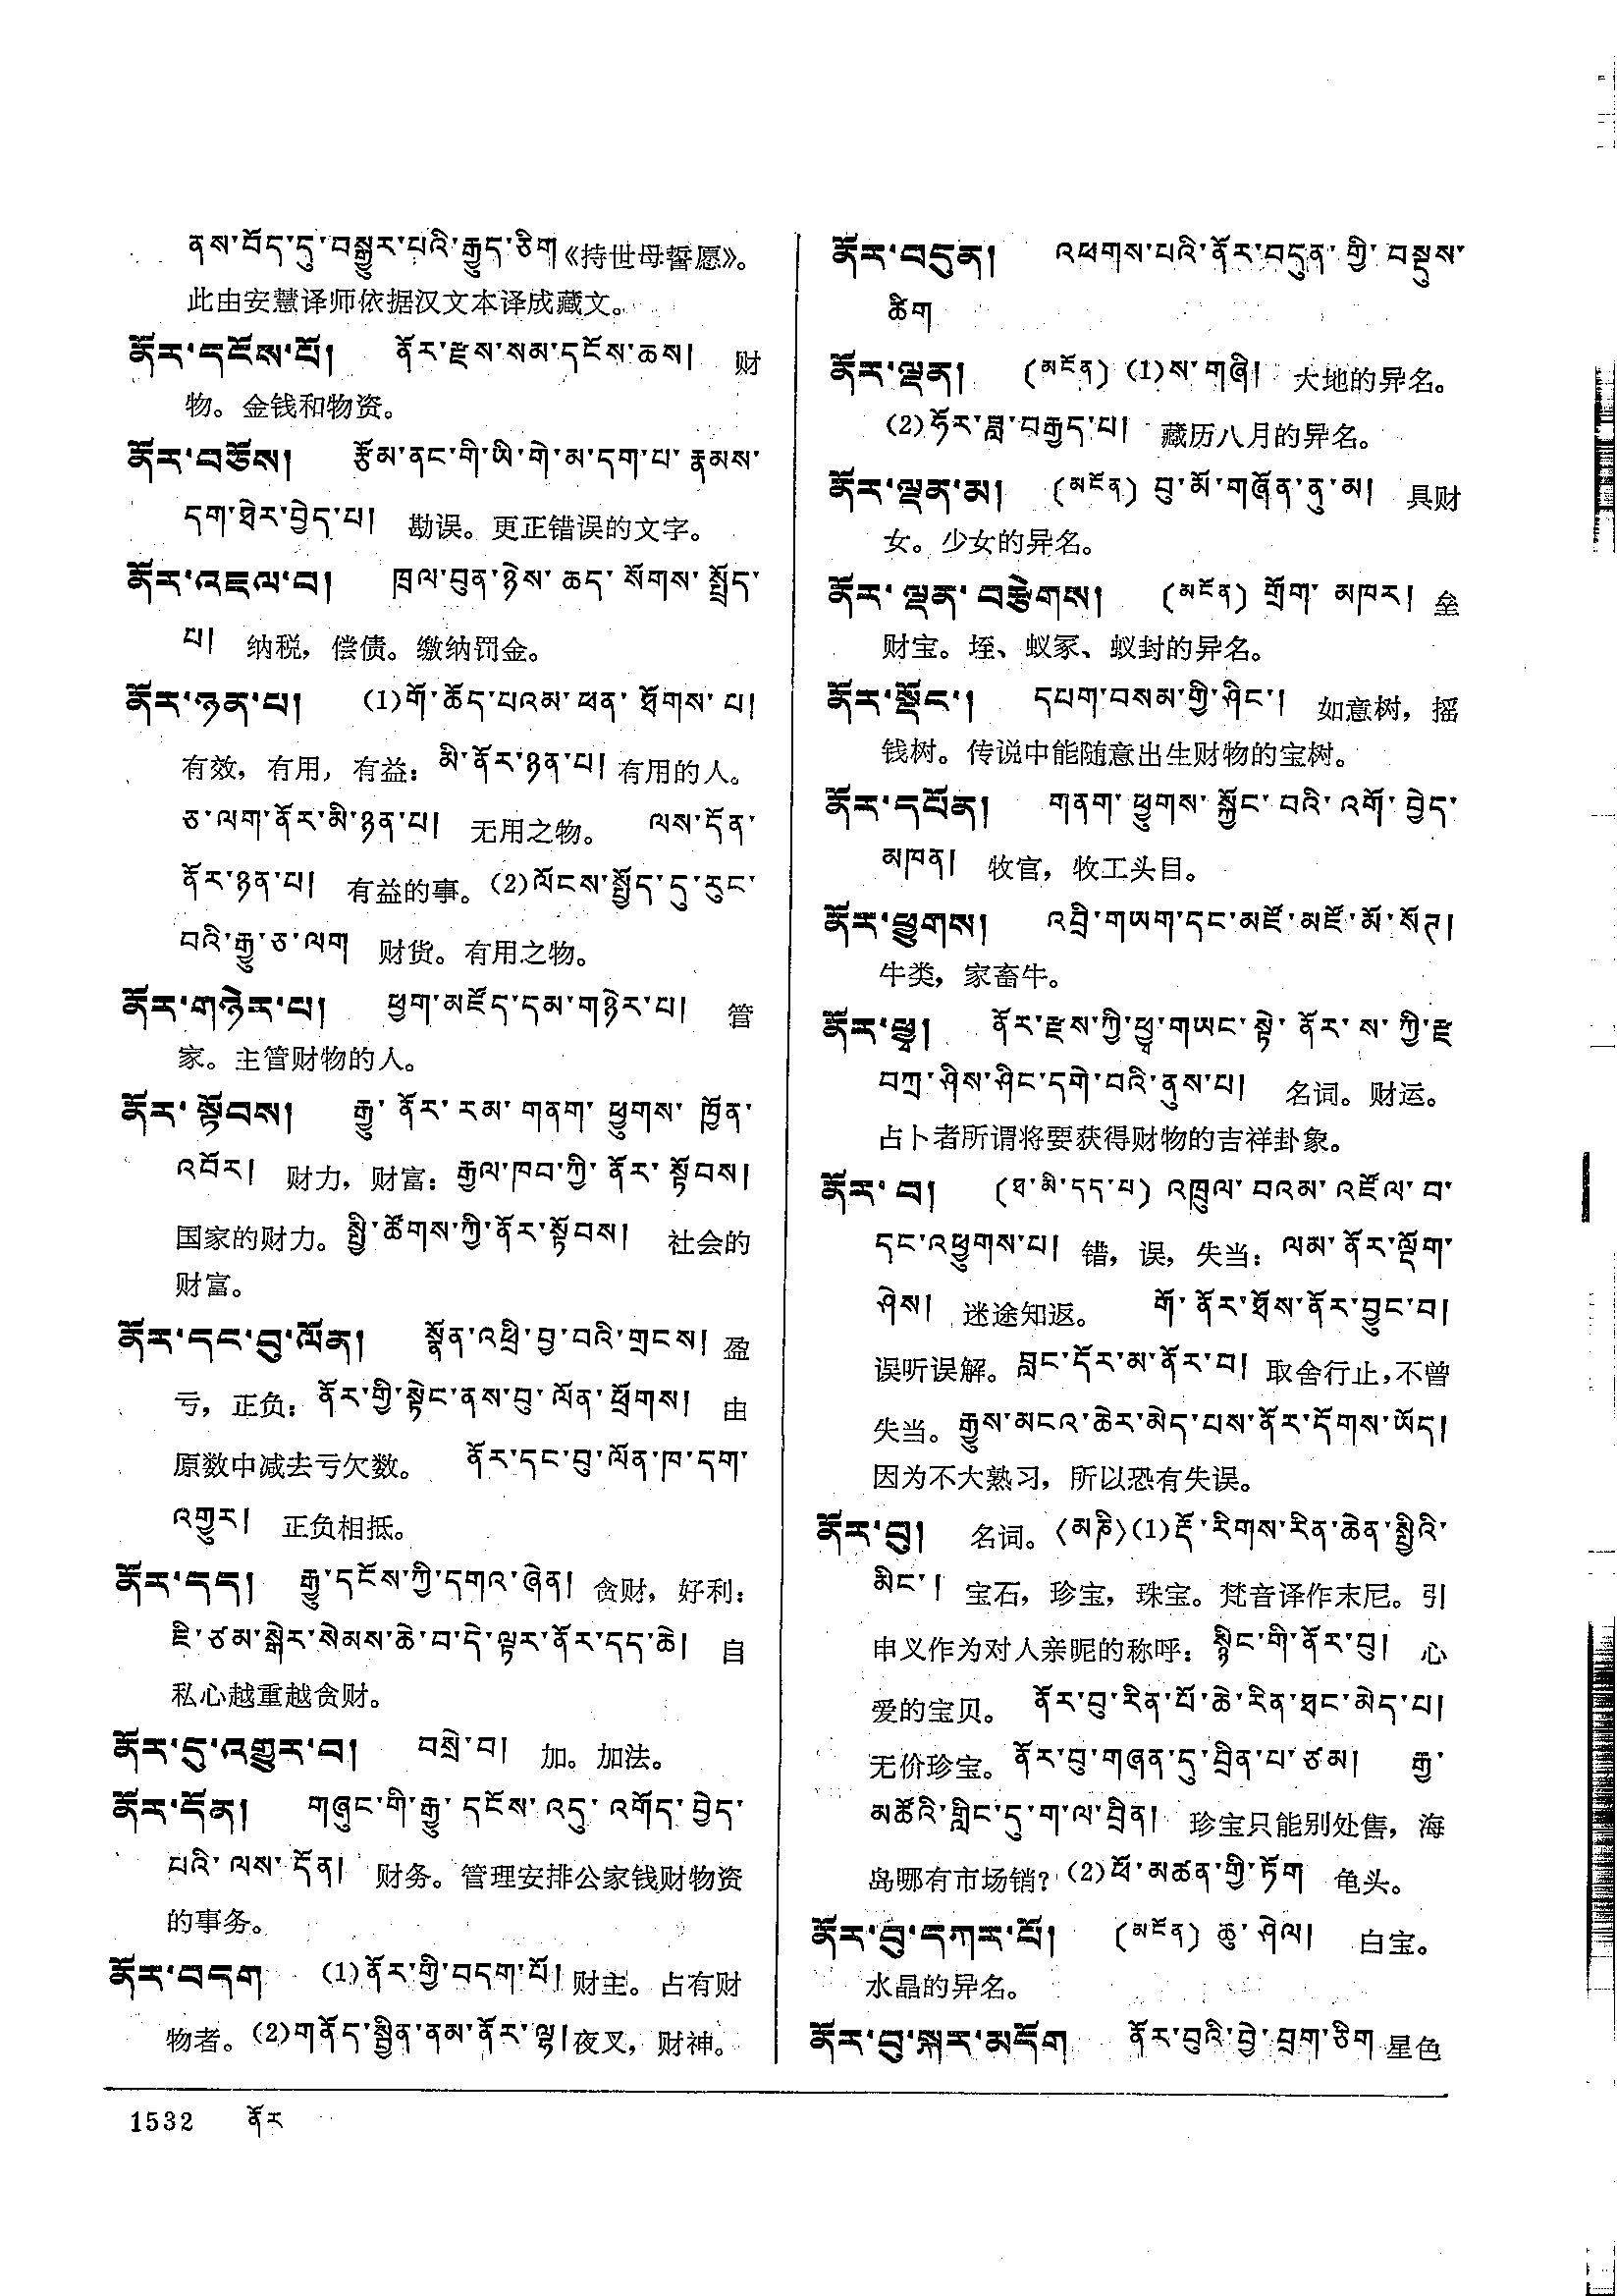 ནས་བོད་དུ་བསྒྱུར་པའི་རྒྱུད་ཅིག《持世母誓愿》。
此由安慧译师依据汉文本译成藏文。
ནོར་དངོས་པོ། ནོར་རྫས་སམ་དངོས་ཆས། 财
物。金钱和物资。
ནོར་བཅོས། རྩོམ་ནང་གི་ཡི་གེ་མ་དག་པ་རྣམས་
དག་ཐེར་བྱེད་པ། 勘误。更正错误的文字。
ནོར་འཇལ་བ། ཁྲལ་བུན་ཉེས་ཆད་སོགས་སྤྲོད་
པ། 纳税，偿债。缴纳罚金。
ནོར་ཉན་པ། (1)གོ་ཆོད་པའམ་ཕན་ཐོགས་པ།
有效，有用，有益：མི་ནོར་ཉན་པ། 有用的人。
ཅ་ལག་ནོར་མི་ཉན་པ། 无用之物。 ལས་དོན་
ནོར་ཉན་པ། 有益的事。(2)ལོངས་སྤྱོད་དུ་རུང་
བའི་རྒྱུ་ཅ་ལག 财货。有用之物。
ནོར་གཉེར་པ། ཕྱག་མཛོད་དམ་གཉེར་པ། 管
家。主管财物的人。
ནོར་སྟོབས། རྒྱུ་ནོར་རམ་གནག་ཕྱུགས་ཁྱོན་
འབོར། 财力，财富：རྒྱལ་ཁབ་ཀྱི་ནོར་སྟོབས།
国家的财力。སྤྱི་ཚོགས་ཀྱི་ནོར་སྟོབས། 社会的
财富。
ནོར་དང་བུ་ལོན། སྣོན་འཕྲི་བྱ་བའི་གྲངས། 盈
亏，正负：ནོར་གྱི་སྟེང་ནས་བུ་ལོན་ཕྲོགས། 由
原数中减去亏欠数。 ནོར་དང་བུ་ལོན་ཁ་དག་
འགྱུར། 正负相抵。
ནོར་དད། རྒྱུ་དངོས་ཀྱི་དགའ་ཞེན། 贪财，好利：
ཇི་ཙམ་སྒེར་སེམས་ཆེ་བ་དེ་ལྟར་ནོར་དད་ཆེ། 自
私心越重越贪财。
ནོར་དུ་འགྱུར་བ། བསྲེ་བ། 加。加法。
ནོར་དོན། གཞུང་གི་རྒྱུ་དངོས་འདུ་འགོད་བྱེད་
པའི་ལས་དོན། 财务。管理安排公家钱财物资
的事务。
ནོར་བདག (1)ནོར་གྱི་བདག་པོ། 财主。占有财
物者。(2)གནོད་སྦྱིན་ནམ་ནོར་ལྷ། 夜叉，财神。
ནོར་བདུན། འཕགས་པའི་ནོར་བདུན་གྱི་བསྡུས་
ཚིག
ནོར་ལྡན། (མངོན) (1)ས་གཞི། 大地的异名。
(2)ཧོར་ཟླ་བརྒྱད་པ། 藏历八月的异名。
ནོར་ལྡན་མ། (མངོན) བུ་མོ་གཞོན་ནུ་མ། 具财
女。少女的异名。
ནོར་ལྡན་བརྩེགས། (མངོན) གྲོག་མཁར། 垒
财宝。垤、蚁冢、蚁封的异名。
ནོར་སྡོང་། དཔག་བསམ་གྱི་ཤིང་། 如意树，摇
钱树。传说中能随意出生财物的宝树。
ནོར་དཔོན། གནག་ཕྱུགས་སྐྱོང་བའི་འགོ་བྱེད་
མཁན། 牧官，牧工头目。
ནོར་ཕྱུགས། འབྲི་གཡག་དང་མཛོ་མཛོ་མོ་སོཊ།
牛类，家畜牛。
ནོར་ཕྱྭ། ནོར་རྫས་ཀྱི་ཕྱྭ་གཡང་སྟེ་ནོར་ས་ཀྱི་རྫ
བཀྲ་ཤིས་ཤིང་དགེ་བའི་ནུས་པ། 名词。财运。
占卜者所谓将要获得财物的吉祥卦象。
ནོར་བ། (ཐ་མི་དད་པ) འཁྲུལ་བའམ་འཛོལ་བ་
དང་འཕྱུགས་པ། 错，误，失当：ལམ་ནོར་ལྡོག་
ཤེས། 迷途知返。 གོ་ནོར་ཐོས་ནོར་བྱུང་བ།
误听误解。བླང་དོར་མ་ནོར་བ། 取舍行止，不曾
失当。རྒྱུས་མངའ་ཆེར་མེད་པས་ནོར་དོགས་ཡོད།
因为不大熟习，所以恐有失误。
ནོར་བུ། 名词。〈མཎི〉(1)རྡོ་རིགས་རིན་ཆེན་སྤྱིའི་
མིང་། 宝石，珍宝，珠宝。梵音译作末尼。引
申义作为对人亲昵的称呼：སྙིང་གི་ནོར་བུ། 心
爱的宝贝。 ནོར་བུ་རིན་པོ་ཆེ་རིན་ཐང་མེད་པ།
无价珍宝。ནོར་བུ་གཞན་དུ་བྲིན་པ་ཙམ། རྒྱ་
མཚོའི་གླིང་དུ་ག་ལ་བྲིན། 珍宝只能别处售，海
岛哪有市场销？(2)ཕོ་མཚན་གྱི་ཏོག 龟头。
ནོར་བུ་དཀར་པོ། (མངོན) ཆུ་ཤེལ། 白宝。
水晶的异名。
ནོར་བུ་སྐར་མདོག ནོར་བུའི་བྱེ་བྲག་ཅིག 星色
1532 ནོར